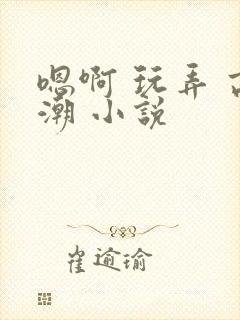 嗯啊 玩弄
潮 小説
崔逾瑜